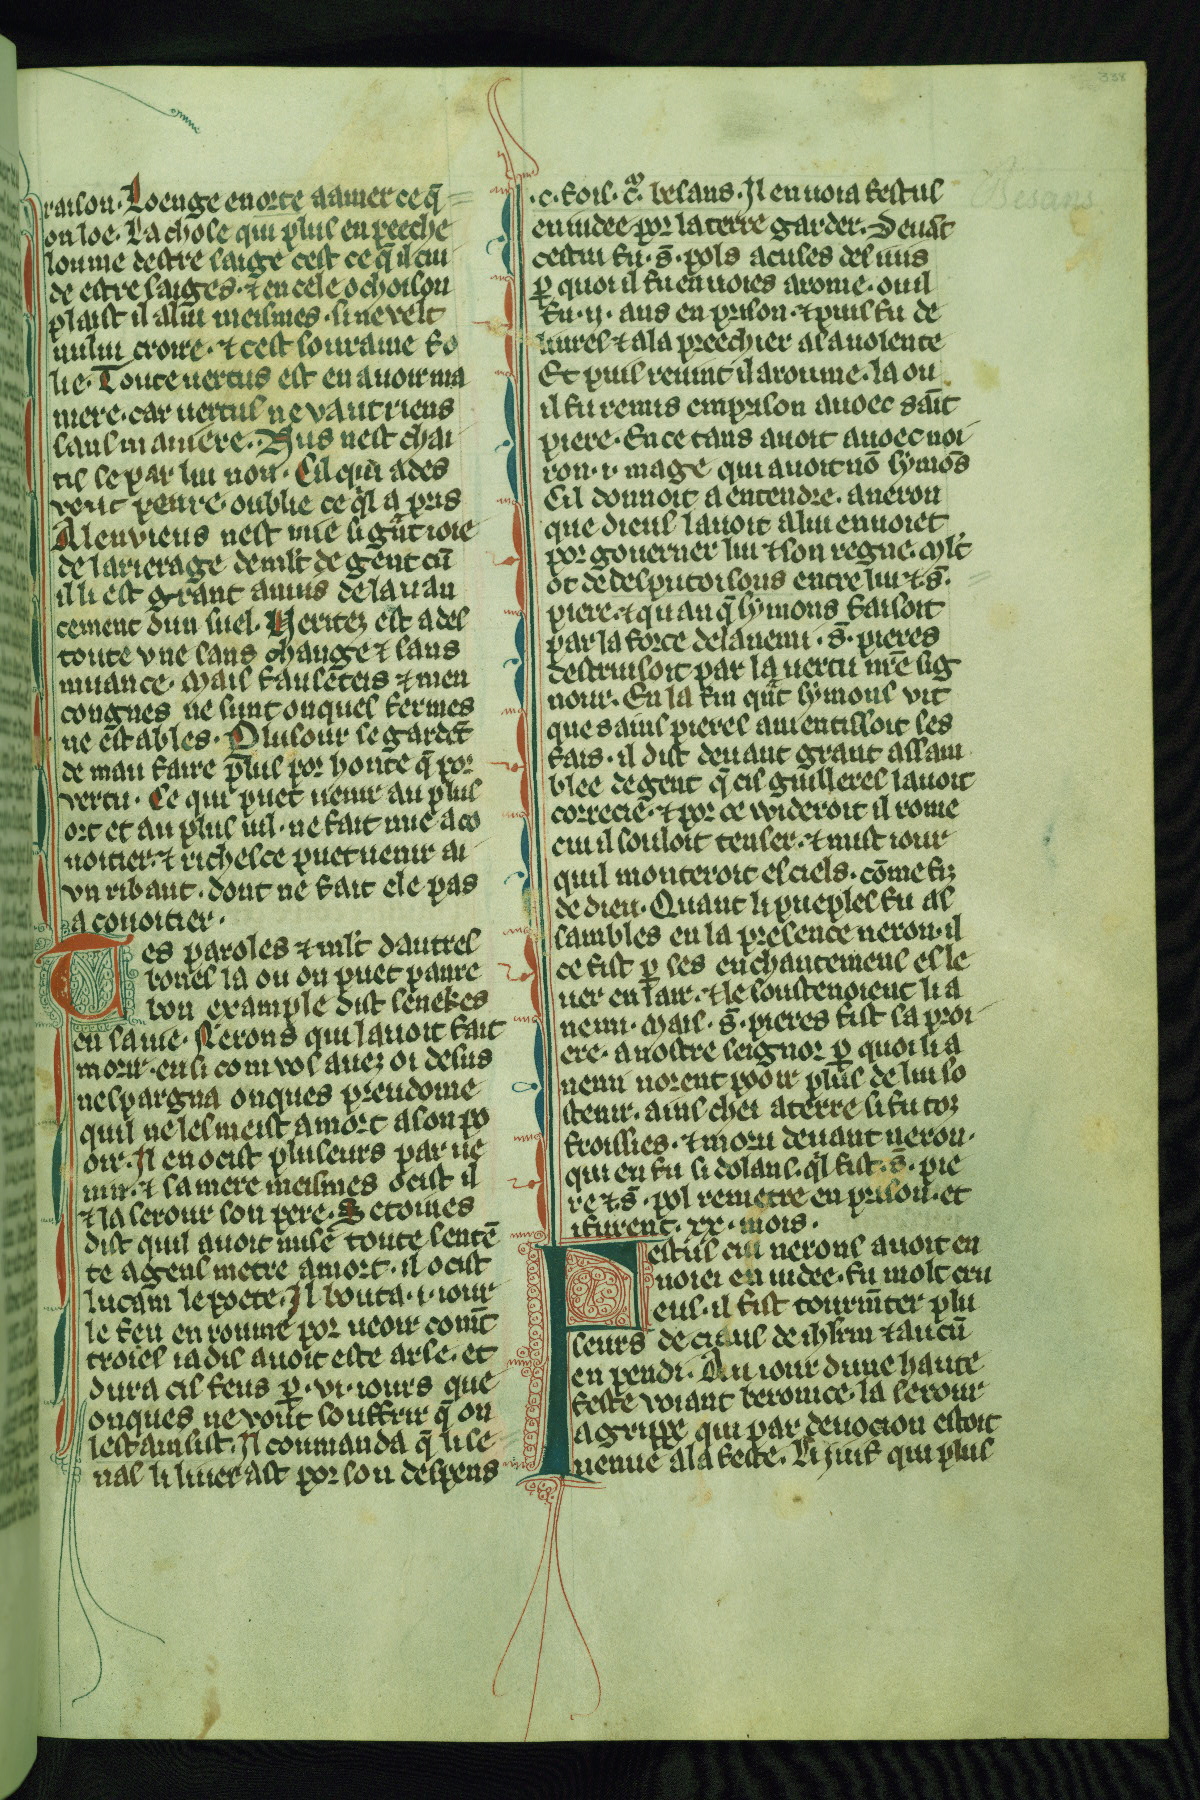 338
raison. Loenge enorte aamer ce q̄
on loe. La chose qui plus enpeeche
loume destre saige cest ce q̄ il cui
de estre saiges. ⁊ en cele ochoison
plaist il a lui meismes. si ne velt
nului croire. ⁊ cest souraine fo
lie. Toute uertus est en auoir ma
niere. car uertus ne vaut riens
sans maniere. Nus nest chai
tis se par lui non. Cil qui ades
veut penre. oublie ce ql a pris
A lenvieus nest mie si gꝛāt ioie
de larierage de mlt de gent cū
il li est grant anuis de lauan
cement dun suel. Veritez est a des
toute vne sans change ⁊ sans
muance. Mais
congnes ne sunt onques fermes
ne estables. Plusour se gardēt
de mau faire plus por honte q̄ por
vertu. Ce qui puet uenir au plus
ort et au plus uil. ne fait mie a co
uoitier. ⁊ richesce puet uenir a i
vn ribaut. dont ne fait ele pas
a couoitier.
Tes paroles ⁊ mlt dautres
boues la ou on puet panre
bon example dist senekes
en sa uie. Nerons qui lauoit fait
morir. ensi com vos auez oi desus
nespargna onques preudome
quil ne les meist a mort a son po
oir. Il en ocist pluseurs par ue
nin. ⁊ sa mere meismes ocist il
⁊ la serour son pere. Setoines
dist quil auoit mise toute sentē
te a gens metre a mort. il ocist
lucam le poete. Il bouta .i. iour
le feu en roume por ueoir comt
troies iadis auoit este arse. et
dura cil feus p̱ .vi. iours que
onques ne vout souffrir q̄ on
lestainsist. Il coumanda q̄ li se
nas li liuerast por son despens
.c. fois .c. besans. Il en uoia festus
en iudee por la terre garder. Deuāt
cestui fu .s̄. pols acuses des iuis
p̱ quoi il fu enuoies a rome. ou il
fu .ij. ans en prison. ⁊ puis fu de
liures ⁊ ala preechier a la uolente
Et puis reuint il a roume. la ou
il fu remis emprison auoec saīt
piere. En ce tans auoit auoec noi
ron .i. mage qui auoit nō symōs
Cil donnoit a entendre. a neron
que dieus lauoit a lui enuoiet
por gouerner lui ⁊ son regne. Mlt
ot de desputoisons entre lui ⁊ .s̄.
piere. ⁊ quanq̄ symons faisoit
par la force de lanemi. s̄. pieres
destruisoit par la uertu nr̄e sig
nour. En la fin qnt symons vit
que sains pieres anientissoit ses
fais. il dist deuant grant assam
blee de gent q̄ cis guilleres lauoit
correcie. ⁊ por ce wideroit il rome
cui il souloit tenser. ⁊ mist iour
quil monteroit es ciels. cōme fiz
de dieu. Quant li pueples fu as
sambles en la presence neron. il
ce fist p̱ ses enchantemens esle
uer en lair. ⁊ le soustenoient li a
nemi. Mais .s̄. pieres fist sa proi
ere. a nostre seignor p̱ quoi li a
nemi norent pooir plus de lui so
stenir. ains chei a terre si fu toz
froissies. ⁊ moru deuant neron.
qui en fu si dolans. ql fist .s̄. pie
re ⁊ .s̄. pol remetre en prison. et
i furent .xx. mois.
Festus cui nerons auoit en
uoiei en iudee. fu molt cru
eus. il fist tourmter plu
seurs de ciaus de ihr̄lm ⁊ aucū
en pendi. Au iour dune haute
feste voiant beronice. la serour
agrippe qui par deuocion estoit
uenue a la feste. Li juif qui plus
Besans